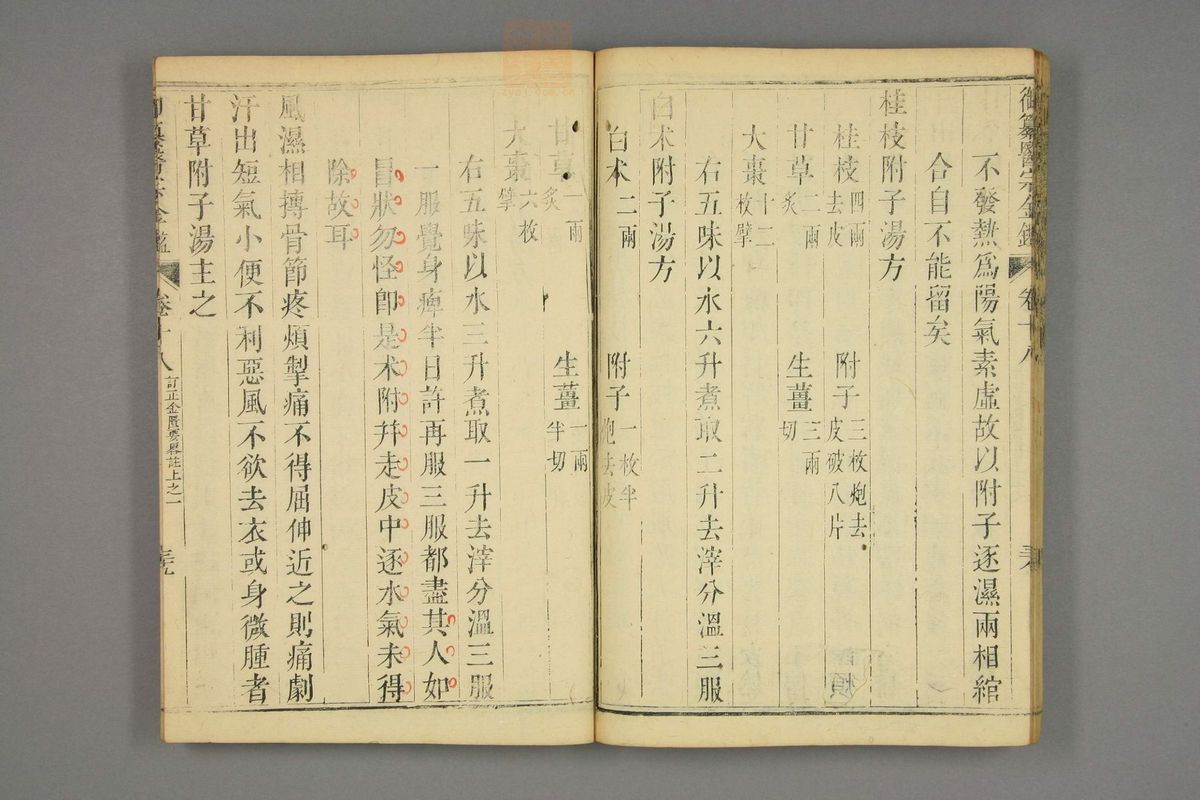 御纂醫宗金鑑 卷十八
不發熱爲陽氣素虛故以附子逐濕兩相綰
合自不能留矣
桂枝附子湯方
桂枝四兩去皮 附子三枚炮去皮破八片
甘草二兩炙 生薑三兩切
大棗十二枚擘
右五味以水六升煮取二升去滓分溫三服
白朮附子湯方
白朮二兩 附子一枚半炮去皮
甘草一兩炙 生薑一兩半切
大棗六枚擘
右五味以水三升煮取一升去滓分溫三服
一服覺身痺半日許再服三服都盡其人如
冒狀勿怪卽是朮附幷走皮中逐水氣未得
除故耳
風濕相摶骨節疼煩掣痛不得屈伸近之則痛劇
汗出短氣小便不利惡風不欲去衣或身微腫者
甘草附子湯主之
御纂醫宗金鑑 卷十八 訂正金匱要畧註上之一 三九